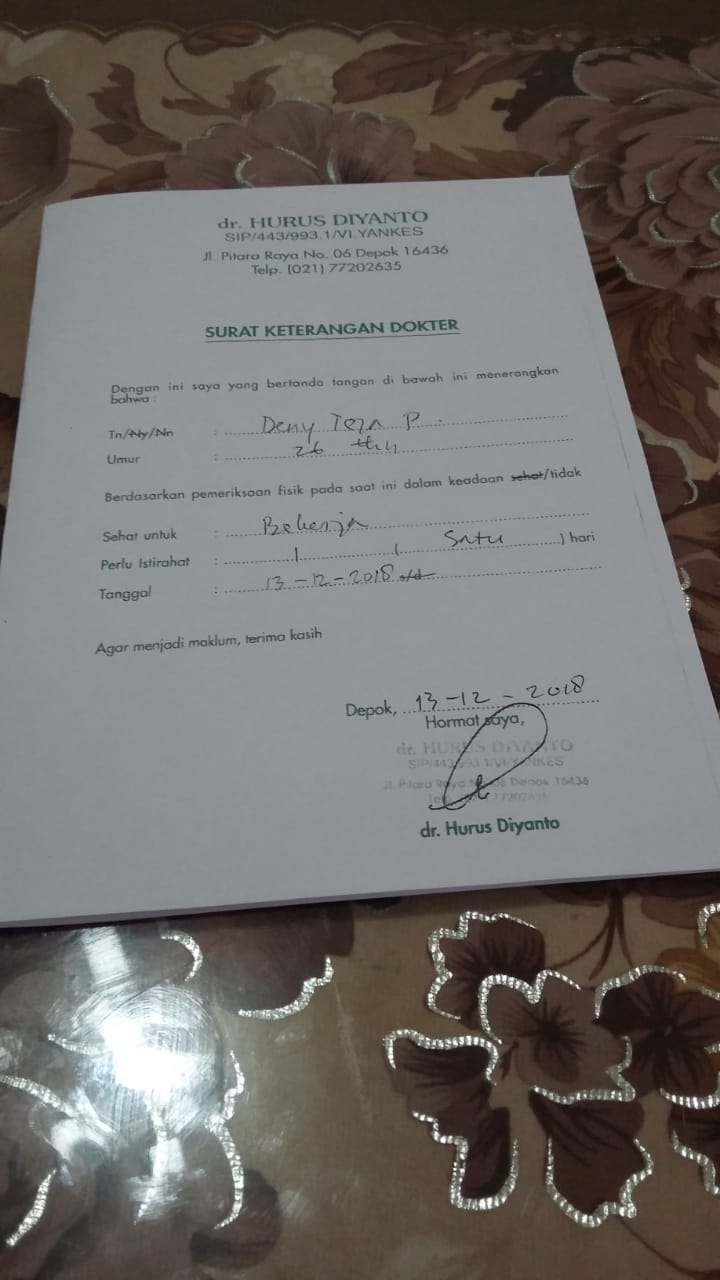 dr. HURUS DIYANTO
SIP/443/993.1/VI.YANKES
Jl. Pitara Raya No. 06 Depok 16436
Telp. (021) 77202635
SURAT KETERANGAN DOKTER
Dengan ini saya yang bertanda tangan di bawah ini menerangkan
bahwa :
Tn/Ny/Nn : Deny Teza P.
Umur : 26 thn
Berdasarkan pemeriksaan fisik pada saat ini dalam keadaan sehat/tidak
Sehat untuk : Bekerja
Perlu Istirahat : 1 ( Satu ) hari
Tanggal : 13-12-2018 s/d
Agar menjadi maklum, terima kasih
Depok, 13-12-2018
Hormat saya,
dr. HURUS DIYANTO
SIP/443/993.1/VI.YANKES
Jl. Pitara Raya No. 06 Depok 16436
77202635
dr. Hurus Diyanto